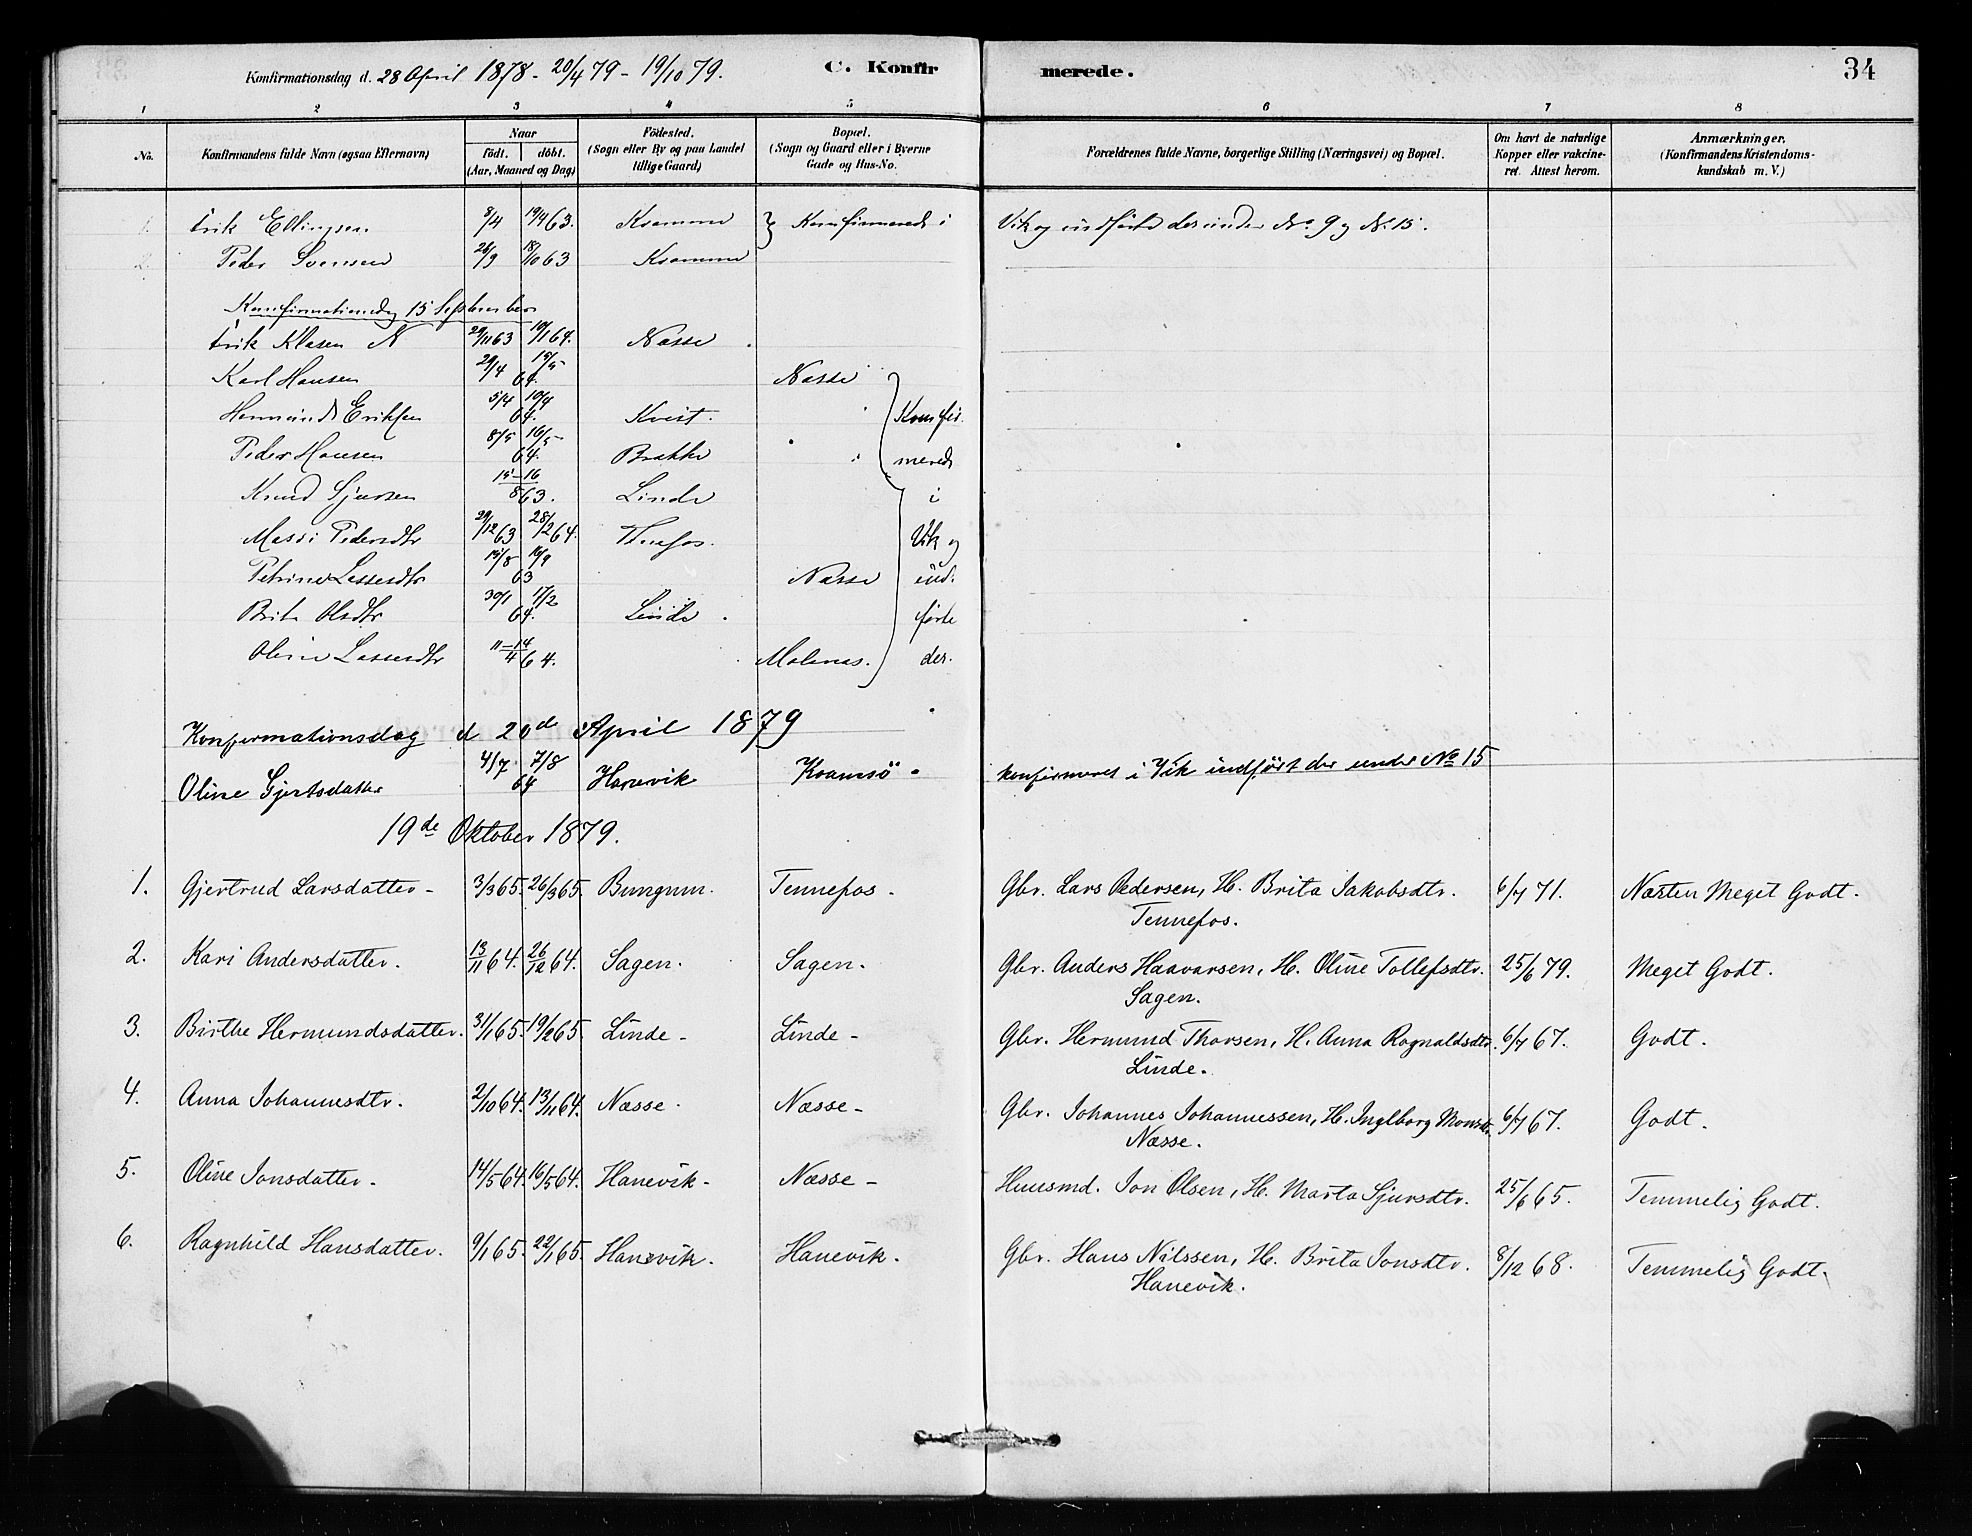 Konfirmationsdag d. 28 April 1878 - 20/4 79 - 19/10 79. C. Konfirmerede. 34
1 2 3 4 5 6 7 8
No. Konfirmandens fulde Navn (ogsaa Efternavn) Naar födt. döbt. (Aar, Maaned og Dag) Födested. (Sogn eller By og paa Landet tillige Gaard) Bopæl. (Sogn og Gaard eller i Byerne Gade og Hus-No. Forældrenes fulde Navne, borgerlige Stilling (Næringsvei) og Bopæl. Om havt de naturlige Kopper eller vakcineret. Attest herom. Anmærkninger, (Konfirmandens Kristendomskundskab m. V.)
1. Erik Ellingsen 8/4 19/4 63. Kvamme } Konfirmerede i Vik og indførte der under No. 9 og No. 15.
2. Peder Svensen 26/9 18/10 63 Kvamme
Konfirmationsdag 15 September
Erik Klasen N 29/11 63 10/1 64. Nasse.
Karl Hansen 29/4 15/5 64. Nasse
Hermund Eriksen 5/4 10/4 64. Kvist. Konfir-
Peder Hansen 8/5 16/5 64. Brekke merede
Knud Sjursen 15-16/8 63. Linde i
Massi Pedersdtr 29/12 63 28/2 64. Tennefos. Vik og
Petrine Lassesdtr 15/8 16/9 63 Nasse ind-
Brite Olsdtr 30/1 17/2 64. Linde. førte
Oline Lassesdtr 11-14/4 64. Molenas. der.
Konfirmationsdag d 20de April 1879
Oline Gjertsdatter 4/7 7/8 64 Hanevik Kvamsö konfirmeret i Vik indført der under No 15
19de Oktober 1879.
1. Gjertrud Larsdatter - 3/3 65. 26/3 65. Bungum. Tennefos. Gbr. Lars Pedersen, H. Brita Jakobsdtr. 6/7 71. Næsten Meget Godt.
Tennefos.
2. Kari Andersdatter. 13/11 64. 26/12 64. Sagen. Sagen. Gbr. Anders Haavarsen, H. Oline Tollefsdtr. 25/6 79. Meget Godt.
Sagen.
3. Birthe Hermundsdatter. 31/1 65. 19/2 65. Linde - Linde - Gbr. Hermund Thorsen, H. Anna Ragnaldsdtr. 6/7 67. Godt.
Linde.
4. Anna Johannesdtr. 2/10 64. 13/11 64. Næsse. Næsse - Gbr. Johannes Johannessen, H. Ingeborg Monsdtr. 6/7 67. Godt.
Næsse.
5. Oline Jonsdatter. 14/5 64. 16/5 64. Hanevik - Næsse - Huusmd. Jon Olsen, H. Marta Sjursdtr. 25/6 65. Temmelig Godt.
6. Ragnhild Hansdatter. 9/1 65. 22/1 65. Hanevik. Hanevik. Gbr. Hans Nilssen, H. Brita Jonsdtr. 8/12 68. Temmelig Godt.
Hanevik.